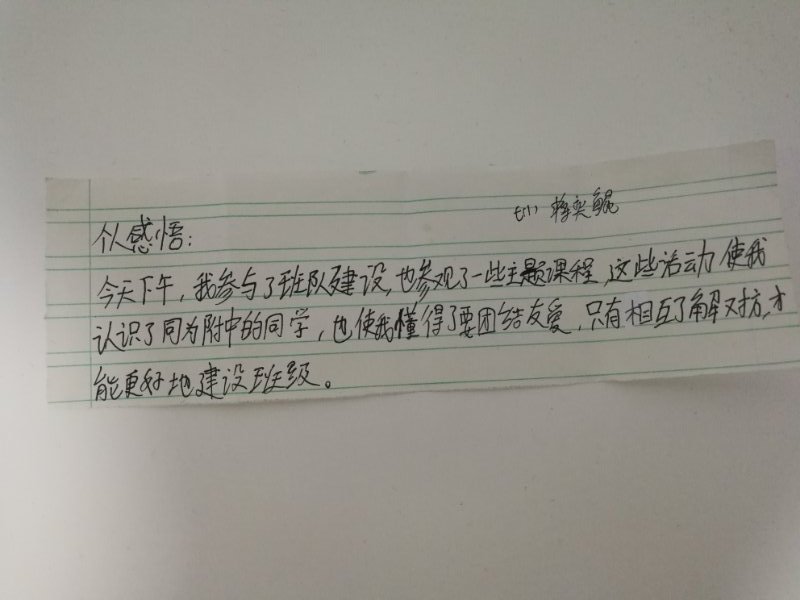 个人感悟:
今天下午,我参与了班队建设,也参观了一些主题课程,这些活动使我
认识了同为附中的同学,也使我懂得了要团结友爱,只有相互了解对方,才
能更好地建设班级。